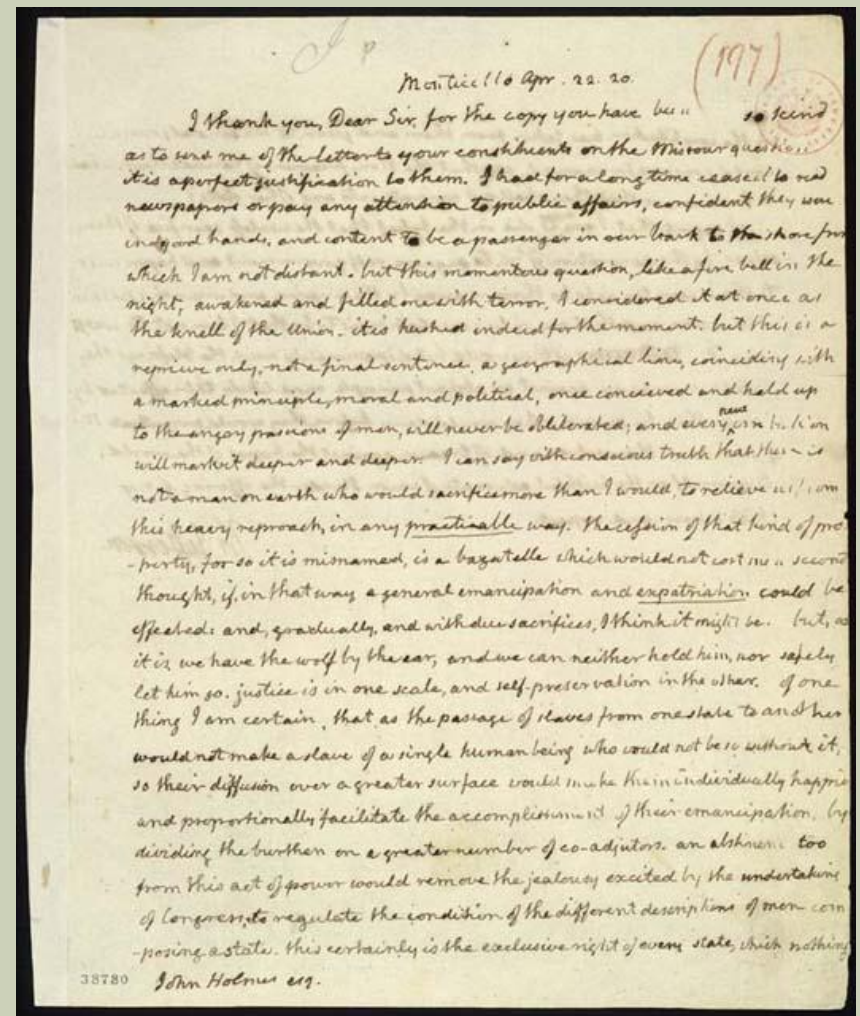 (197)
Monticello Apr. 22. 20.
I thank you, Dear Sir, for the copy you have been so kind
as to send me of the letter to your constituents on the Missouri question.
it is a perfect justification to them. I had for a long time ceased to read
newspapers or pay any attention to public affairs, confident they were
in good hands, and content to be a passenger in our bark to the shore from
which I am not distant. but this momentous question, like a fire bell in the
night, awakened and filled me with terror. I considered it at once as
the knell of the Union. it is hushed indeed for the moment. but this is a
reprieve only, not a final sentence. a geographical line, coinciding with
a marked principle, moral and political, once concieved and held up
to the angry passions of men, will never be obliterated; and every new irritation
will mark it deeper and deeper. I can say with conscious truth that there is
not a man on earth who would sacrifice more than I would, to relieve us from
this heavy reproach, in any practicable way. the cession of that kind of pro-
-perty, for so it is misnamed, is a bagatelle which would not cost me a second
thought, if, in that way, a general emancipation and expatriation could be
effected: and, gradually, and with due sacrifices, I think it might be. but, as
it is, we have the wolf by the ear, and we can neither hold him, nor safely
let him go. justice is in one scale, and self-preservation in the other. of one
thing I am certain, that as the passage of slaves from one state to another
would not make a slave of a single human being who would not be so without it,
so their diffusion over a greater surface would make them individually happier
and proportionally facilitate the accomplishment of their emancipation, by
dividing the burthen on a greater number of co-adjutors. an abstinence too
from this act of power would remove the jealousy excited by the undertaking
of Congress, to regulate the condition of the different descriptions of men com-
-posing a state. this certainly is the exclusive right of every state, which nothing
38780 John Holmes esq.